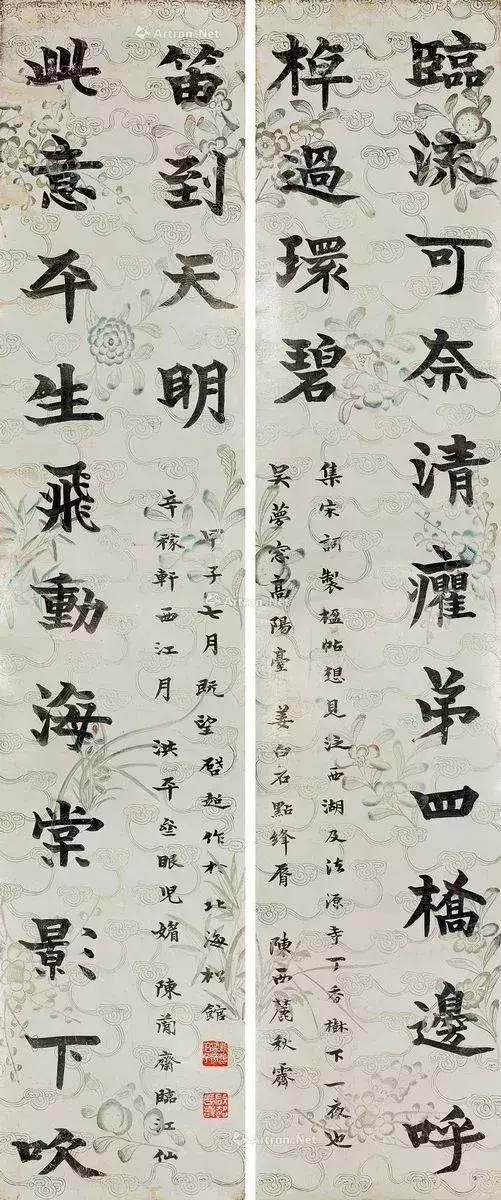 臨流可奈清癯弟四橋邊呼
棹過環碧
集宋詞製楹帖想見泛西湖及法源寺丁香樹下一夜也
吳夢窓高陽臺 姜白石點絳脣 陳西麓秋霽
此意平生飛動海棠影下吹
笛到天明
辛稼軒西江月 洪平 眼児媚 陳蕑齋臨江仙
甲子七月既望啓超作於北海松館
Artron.Net